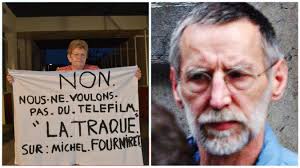 NON.
NOUS-NE.VOULONS-
PAS.DU.TELEFILM.
"LA.TRAQUE."
SUR:MICHEL.FOURNIRET